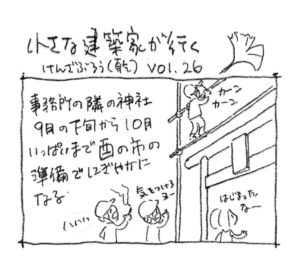 小さな建築家が行く
けんざぶろう(乾) vol.26
事務所の隣の神社
9月の下旬から10月
いっぱいまで酉の市の
準備でにぎやかに
なる
カーン
カーン
ハハハ
気をつけろ
ヨー
はじまった
なー